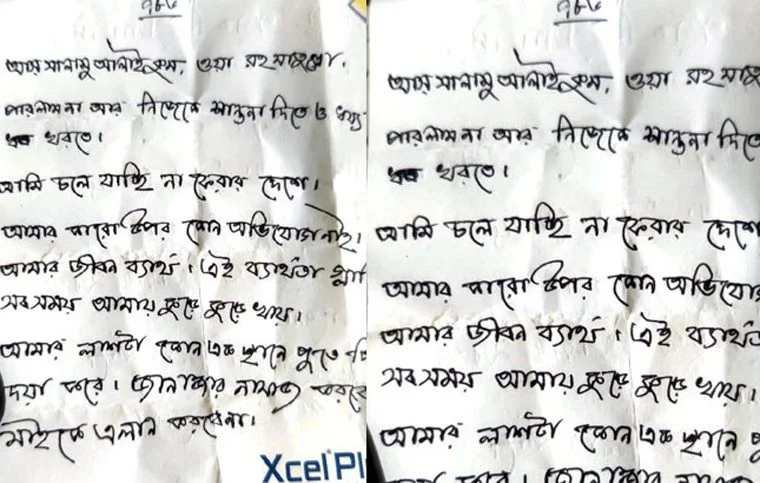 ৭৮৬
আসসালামু আলাইকুম, ওয়া রহমাতুল্লা।
পারলাম না আর নিজেকে শান্তনা দিতে ও ধয্য
ধরতে।
আমি চলে যাচ্ছি না ফেরার দেশে।
আমার কারো উপর কোন অভিযোগ নাই।
আমার জীবন ব্যার্থ। এই ব্যার্থতা
সব সময় আমায় কুড়ে কুড়ে খায়।
আমার লাশটা কোন এক স্থানে পুতে
দয়া করে। জানাজার নামাজ করবে
মাইকে এলান করবেনা।
XcelPl
৭৮৬
আসসালামু আলাইকুম, ওয়া রহমা
পারলাম না আর নিজেকে শান্তনা দিতে
ধরতে।
আমি চলে যাচ্ছি না ফেরার দেশে
আমার কারো উপর কোন অভিযো
আমার জীবন ব্যার্থ। এই ব্যার্থত
সব সময় আমায় কুড়ে কুড়ে খায়।
আমার লাশটা কোন এক স্থানে পু
দয়া করে। জানাজার নামাজ